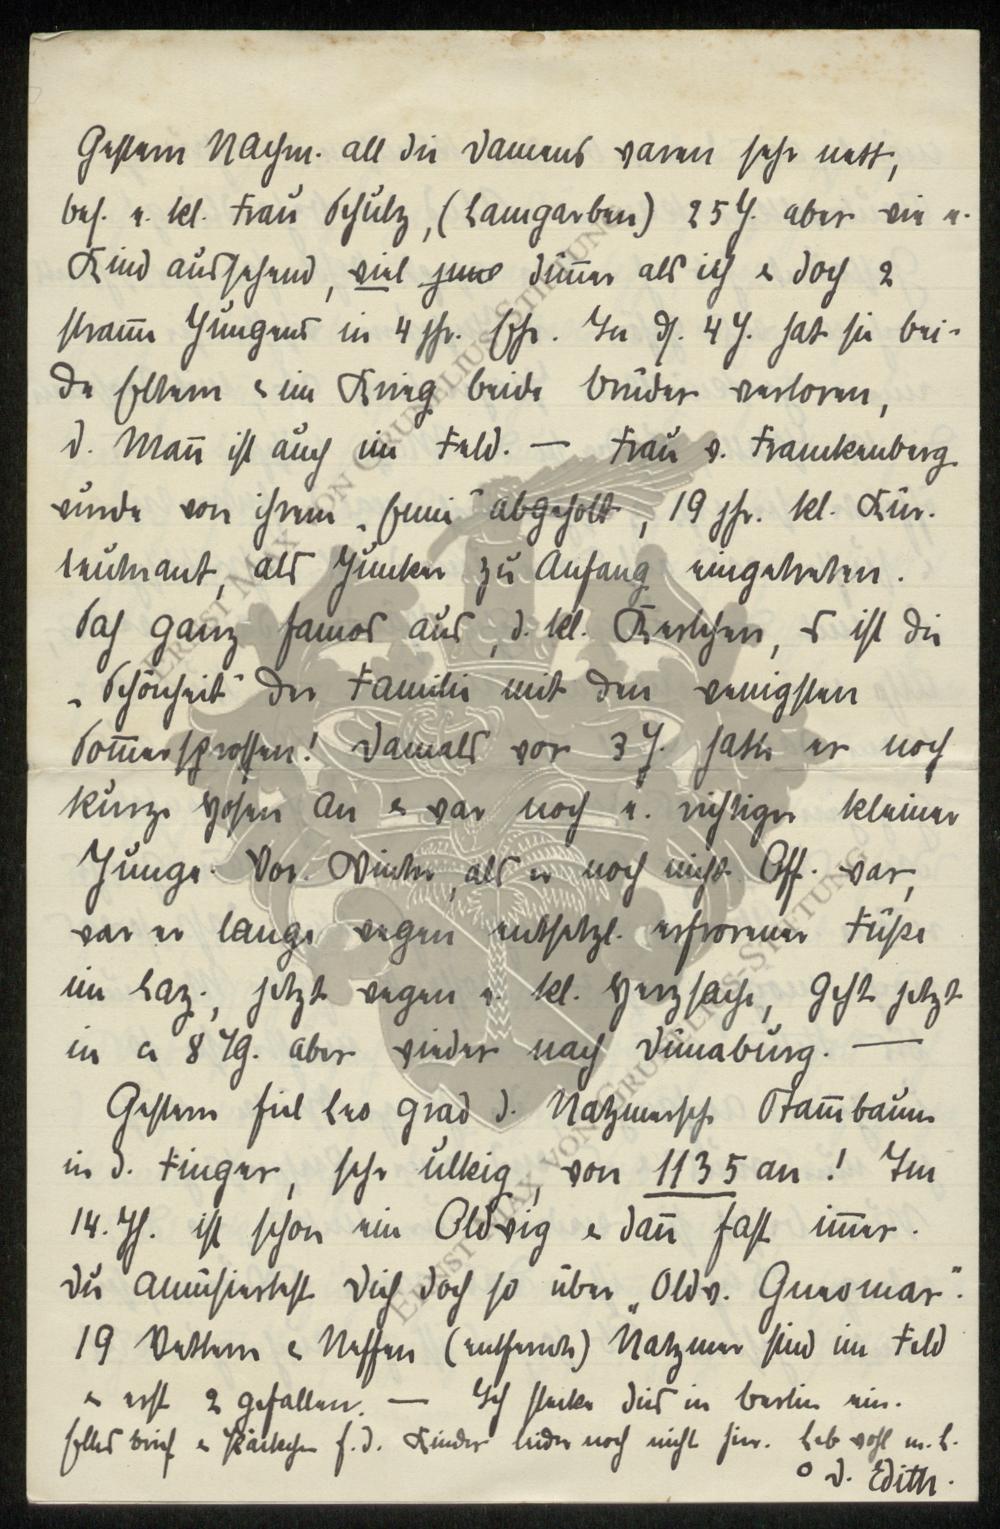 Gestern Nachm. all die Damens waren sehr nett,
bes. e. kl. Frau Schulz, (Langarben) 25 J. aber wie e.
Kind aussehend, viel dünner als ich & doch 2
stramme Jungens in 4 jhr. Ehe. In ds. 4 J. hat sie bei-
de Eltern & im Krieg beide Brüder verloren,
d. Mann ist auch im Feld. — Frau v. Franckenberg
wurde von ihrem „ abgeholt, 19 jhr. kl. Kür.
leutnant, als Junker zu Anfang eingetreten.
Sah ganz famos aus, d. kl. Kerlchen, & ist die
„Schönheit“ der Familie mit den wenigsten
Sommersprossen! Damals vor 3 J. hatte er noch
kurze Hosen an & war noch e. richtiger kleiner
Junge. Vor. Winter, als er noch nicht Off. war,
war er lange wegen entsetzl. erfrorener Füße
im Laz., jetzt wegen e. kl. Herzsache, geht jetzt
in ca 8 Tg. aber wieder nach Dünaburg. —
Gestern fiel Leo grad d. Natzmersche Stammbaum
in d. Finger, sehr ulkig, von 1135 an! Im
14. Jh. ist schon ein Oldwig & dann fast immer.
Du amüsiertest Dich doch so über „Oldw. Gneomar“.
19 Vettern & Neffen (entfernte) Natzmer sind im Feld
& erst 2 gefallen. — Ich stecke dies in Berlin ein.
Elles Brief & Päckchen f. d. Kinder leider noch nicht hier. Leb wohl m. L.
D. Edith.
ERNST MAX VON GRUNELIUS-STIFTUNG
ERNST MAX VON GRUNELIUS-STIFTUNG